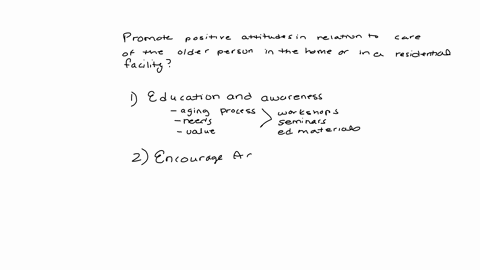 Promote positive attitudes in relation to care
of the older person in the home or in a residential
facility?
1) Education and awareness
- aging process > workshops
- needs seminars
- value ed materials
2) Encourage Ar